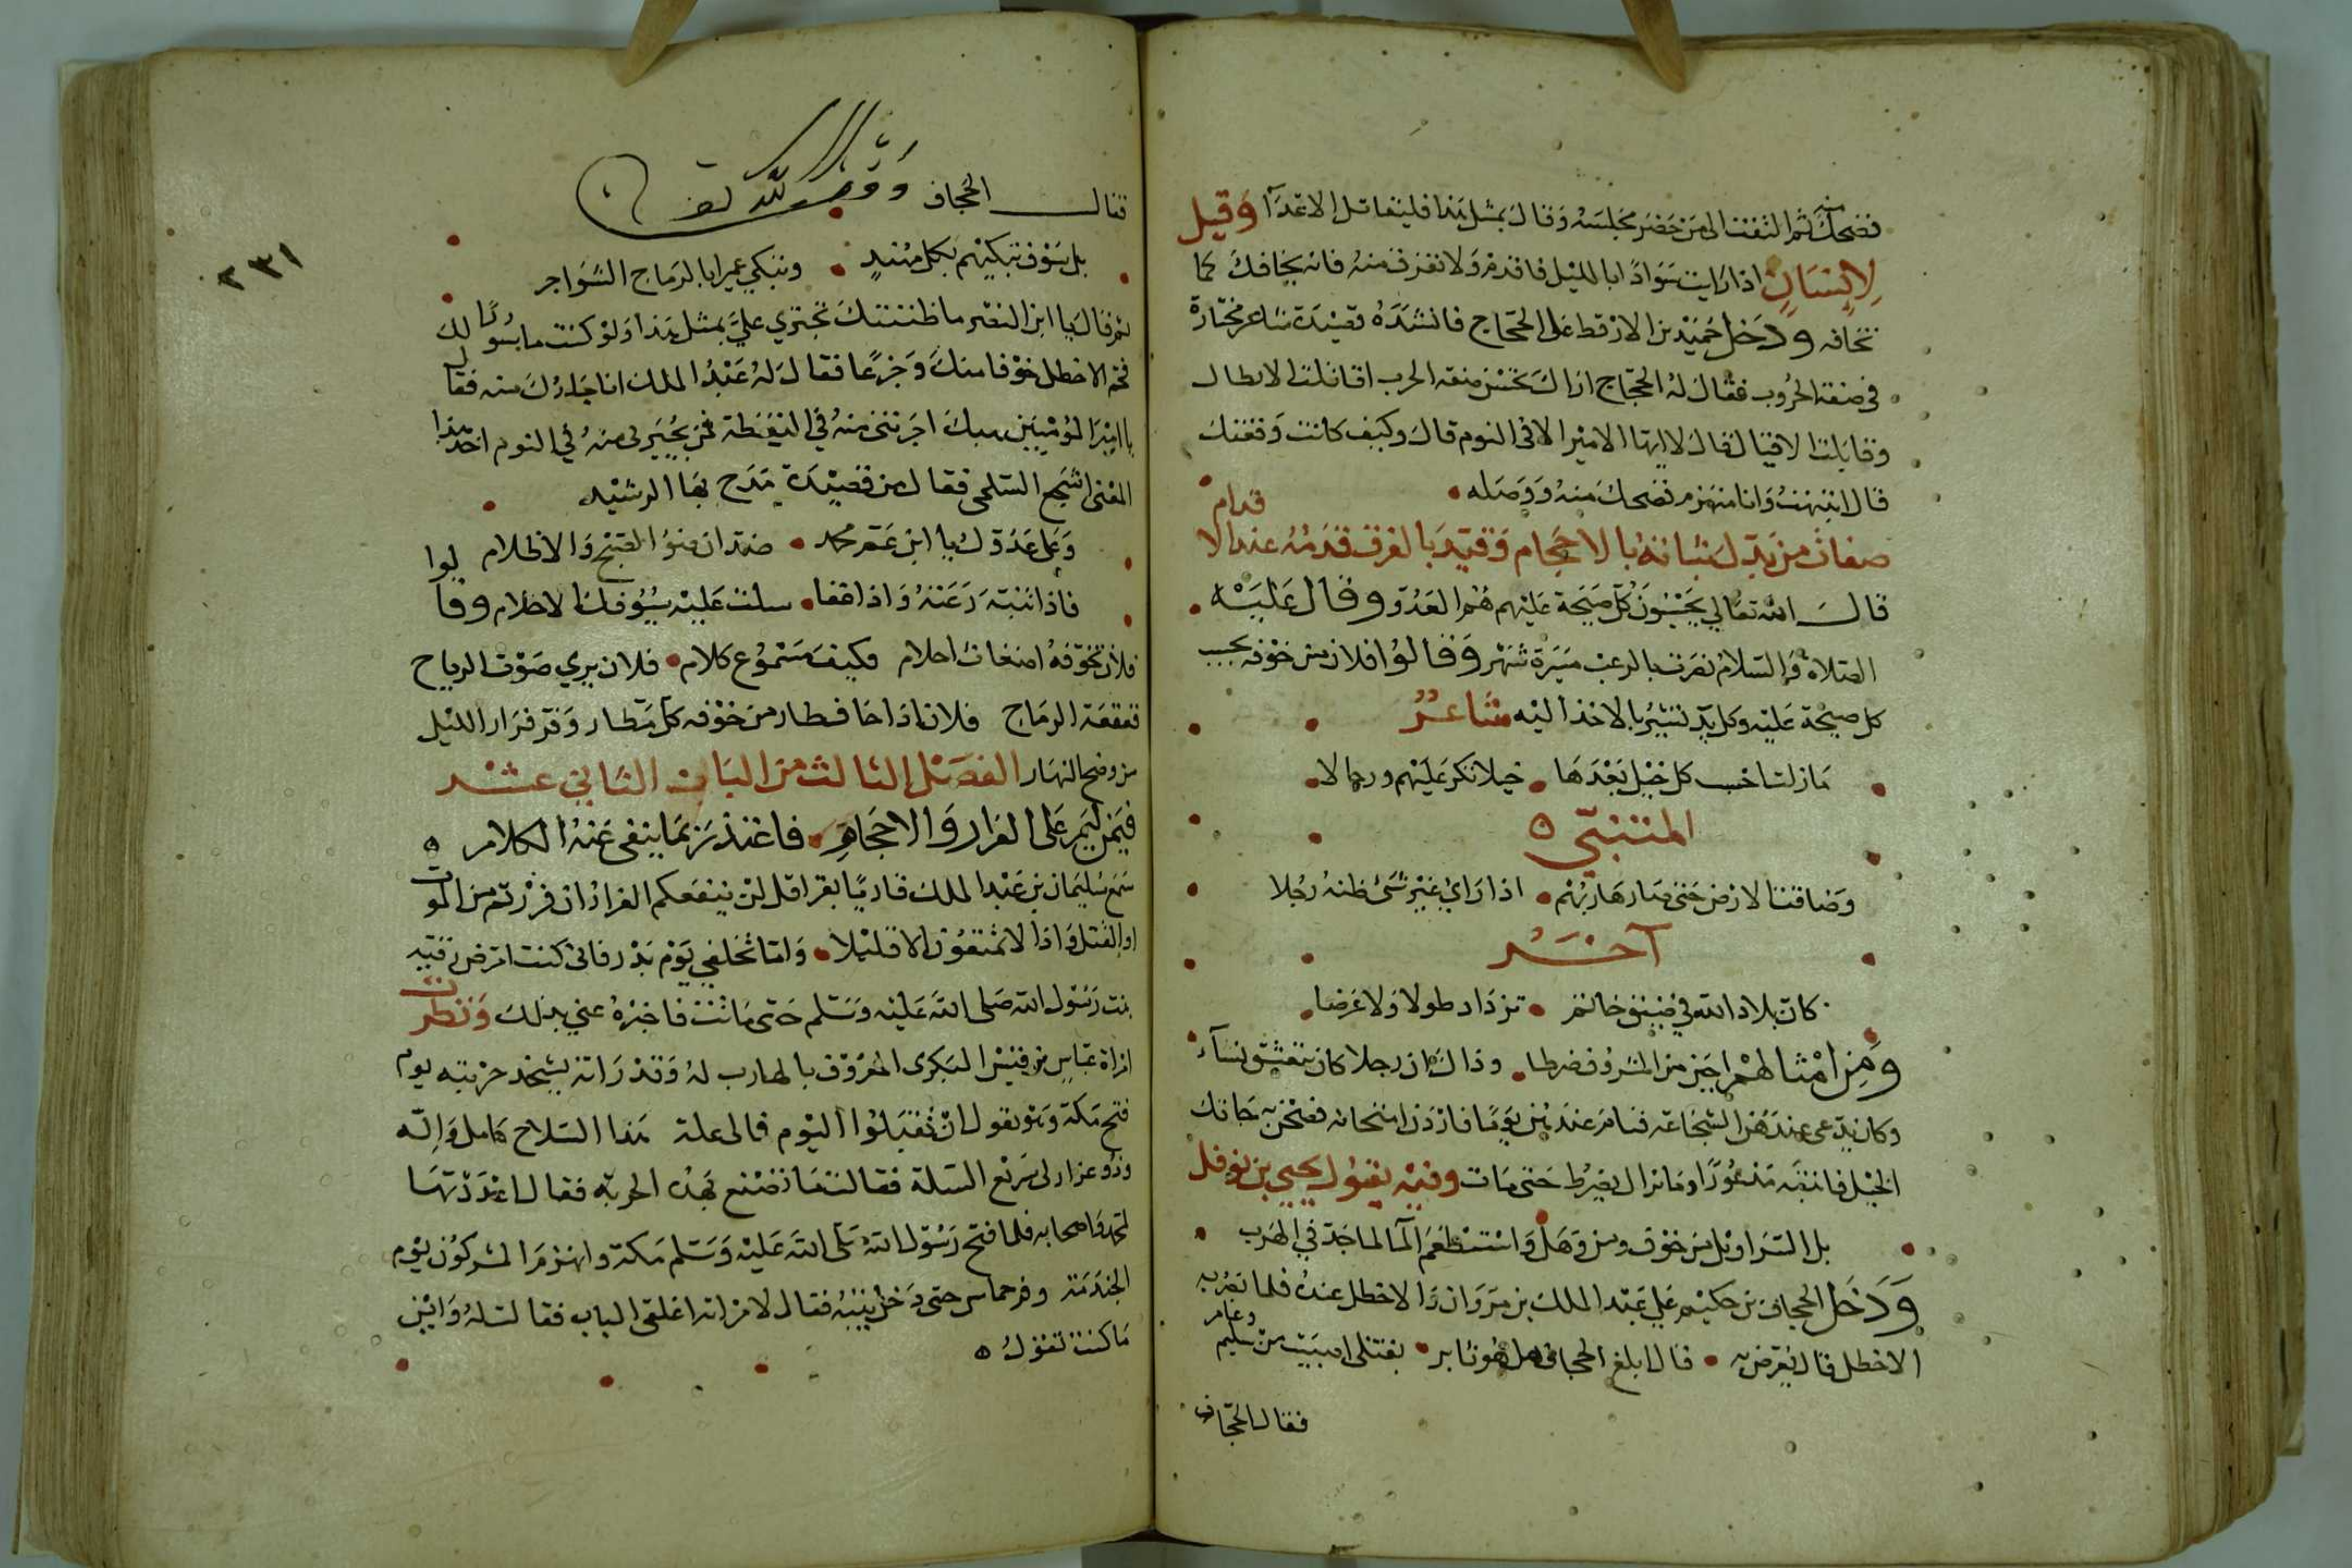 فضحك منه ثم التفت الى من حضر مجلسه وقال بمثل هذا فليقاتل الاعداء وقيل
لانسان اذا رايت سوادًا بالليل فاقدم ولا تفرق منه فانه يخافك كما
تخافه ودخل حميد بن الارقط على الحجاج فانشده قصيدة شاعر مختارة
في صفة الحروب فقال له الحجاج اراك تحسن صفة الحرب اقاتلت الابطال
وقابلت الاقيال قال لا ايها الامير الا في النوم قال وكيف كانت وقعتك
قال انتبهت وانا منهزم فضحك منه ووصله
صفات من بدل شباته بالاحجام وقيد بالفرق قدمه عند الاقدام
قال الله تعالي يحسبون كل صيحة عليهم هم العدو وقال عليه
الصلاة والسلام نصرت بالرعب مسيرة شهر وقالوا فلان من خوفه يحسب
كل صيحة عليه وكل يد تشير بالاخذ اليه شاعر
مازلت احسب كل خيل بعدها خيلا تكر عليهم ورجالا
المتنبي
وضاقت الارض حتى صار هاربهم اذا راي غير شئ ظنه رجلا
آخر
كان بلاد الله في ضيق خاتم تزداد طولا ولا عرضا
ومن امثالهم اجبن من المنزوف ضرطا وذاك ان رجلا كان يتعشق نساء
وكان يدعي عندهن الشجاعة فنام عندهن يوما فاردن امتحانه فصحن به جاتك
الخيل فانتبه مذعورا ومازال يضرط حتى مات وفيه يقول يحيي بن نوفل
بل السراويل من خوف ومن وهل واستطعم الما لما جد في الهرب
ودخل الحجاف بن حكيم على عبد الملك بن مروان والاخطل عنده فلما بصر به
الاخطل قال يعرض به قال ابلغ الحجاف هل هو ثاير بقتلى اصيبت من سليم وعامر
فقال الحجاف
فقال الحجاف وقف لله تعالى
٢٣١
بل سوف نبكيهم بكل مهند ونبكي عميرا بالرماح الشواجر
ثم قال يا ابن النصر ما ظننتك تجتري علي بمثل هذا ولو كنت ماسورا لك
فحم الاخطل خوفا منك وجزعا فقال له عبد الملك انا جارك منه فقال
يا امير المؤمنين هبك اجرتني منه في اليقظة فمن يجيرني منه في النوم اخذ هذا
المعنى اشجع السلمى فقال من قصيدة يمدح بها الرشيد
وعلى عدوك يا ابن عم محمد ضدان ضوء الصبح والاظلام
فاذا تنبه رعته واذا غفا سلت عليه سيوفك الاحلام وقالوا
فلان تخوفه اضغاث احلام فكيف مسموع كلام فلان يري صوت الرياح
قعقعة الرماح فلان اذا خاف طار من خوفه كل مطار وفر فرار الليل
من وضح النهار الفصل الثالث من الباب الثاني عشر
فيمن ليم على الفرار والاحجام فاعتذر بما ينفى عنه الكلام
سمع سليمان بن عبد الملك قاريا يقرا قل لن ينفعكم الفرار ان فررتم من الموت
او القتل واذا لا تمتعون الا قليلا واما تخلفي يوم بدر فاني كنت امرض رقية
بنت رسول الله صلى الله عليه وسلم حتى ماتت فاخبره عني بذلك ونظرت
امراة عباس بن قيس البكرى المعروف بالهارب له وقد راته يشحذ حربته يوم
فتح مكة وهو يقول ان تقبلوا اليوم فمالى علة هذا السلاح كامل واله
وذو غرار لى سريع السلة فقالت ما تصنع بهذه الحربة فقال اعددتها
لمحمد واصحابه فلما فتح رسول الله صلى الله عليه وسلم مكة وانهزم المشركون يوم
الخندمة وفر حماس حتى دخل بيته فقال لامراته اغلقى الباب فقالت له واين
ما كنت تقول